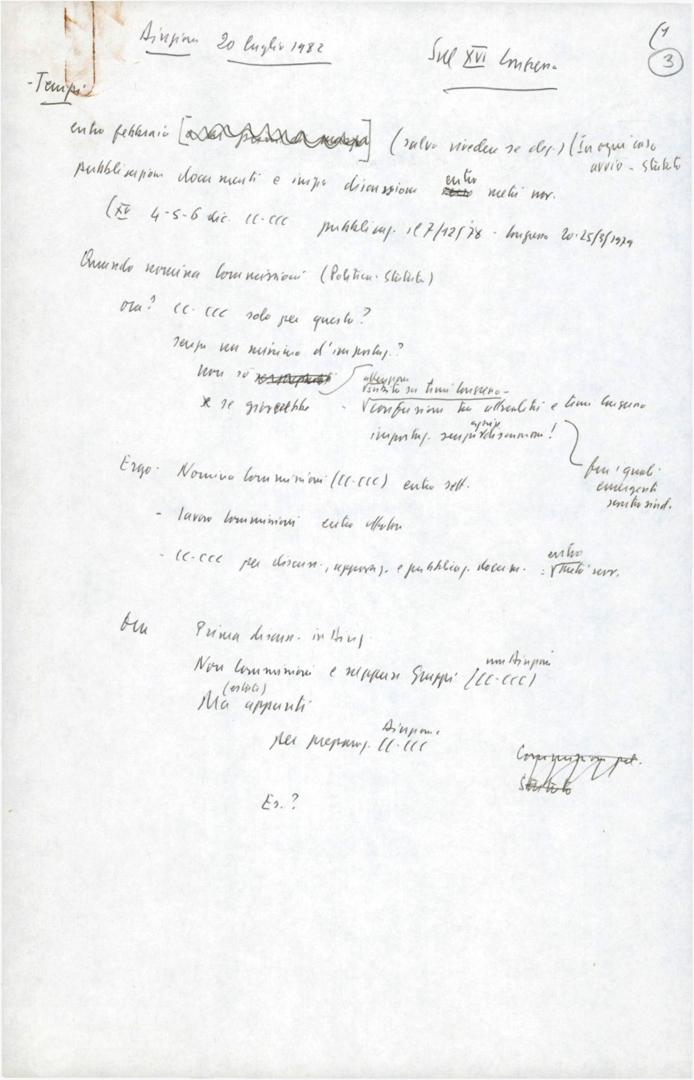 Direzione 20 luglio 1982 Sul XVI Congresso (1
3
- Tempi
entro febbraio [ ] (salvo rivedere se dep.) (In ogni caso
avvio - Statuto
pubblicazione documenti e inizio discussione entro metà nov.
(XV 4-5-6 dic. CC-CCC pubblicaz. il 7/12/78 - Congresso 20-25/3/1979
Quando nomina Commissioni (Politica - Statuto)
ora? CC-CCC solo per questo?
senza un minimo d'impostaz.?
non so attenzione
subito su temi Congresso -
se gioverebbe - confusione tra attualità e temi Congresso
impostaz. senza discussione!
quali
emergenti
Ergo: Nomina Commissioni (CC-CCC) entro sett.
- lavoro Commissioni entro ottobre
- CC-CCC per discuss., approvaz. e pubblicaz. docum. : entro metà nov.
Ora Prima discuss. in Direz.
Non Commissioni e neppure Gruppi (CC-CCC)
(estate)
Ma appunti
per preparaz. Direzione CC-CCC
Commissione pol.
Statuto
Es.?